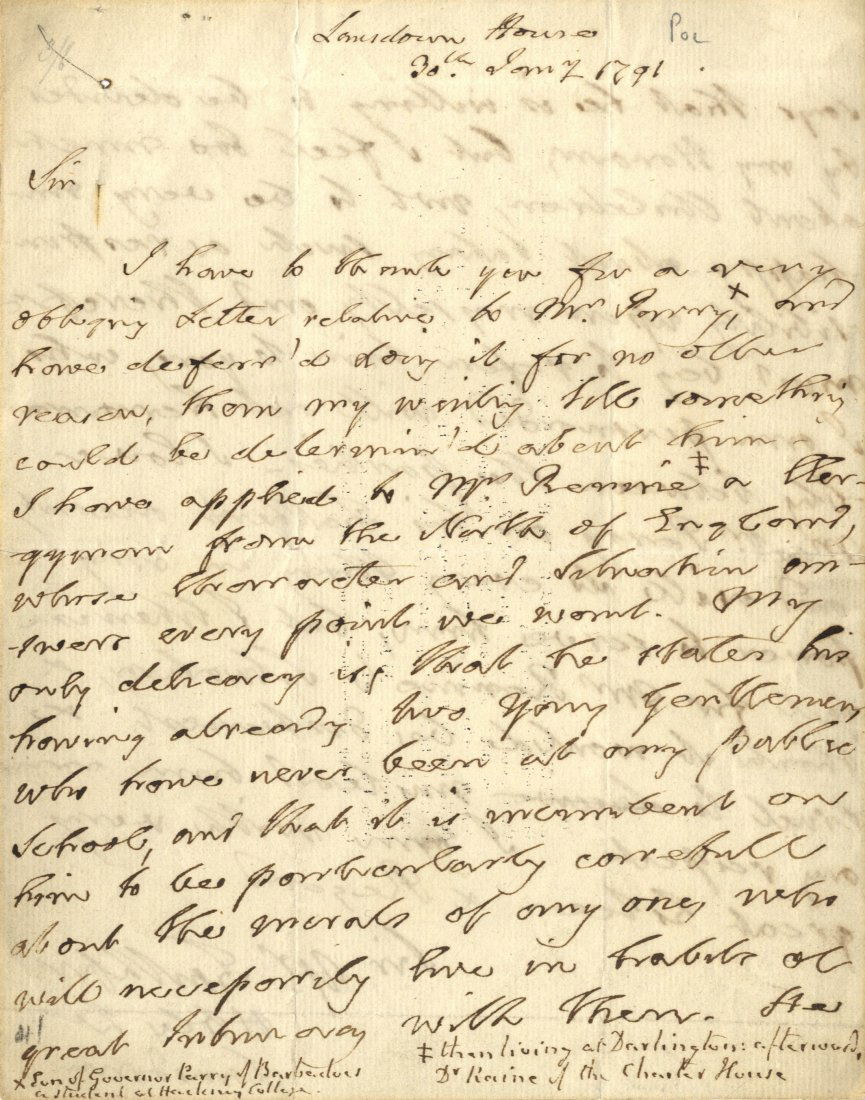 Lansdown House
30th. Jany 1791.
Sir
I have to thank you for a very
obliging Letter relative to Mr. Parry, × and
have deferr'd doing it for no other
reason, than my waiting till something
could be determin'd about him -
I have applied to Mr. ‡ a Cler-
-gyman from the North of England,
whose Character and Situation an-
-swers every point we want. My
only delicacy is, that he states his
having already two young Gentlemen,
who have never been at any Publick
School, and that it is incumbent on
him to be particularly carefull
about the morals of any one, who
will necessarily live in habits of
great Intimacy with them. He
× Son of Governor Parry of Barbadoes
a student at Hackney College.
‡ then living at Darlington: afterwards,
Dr Raine of the Charter House